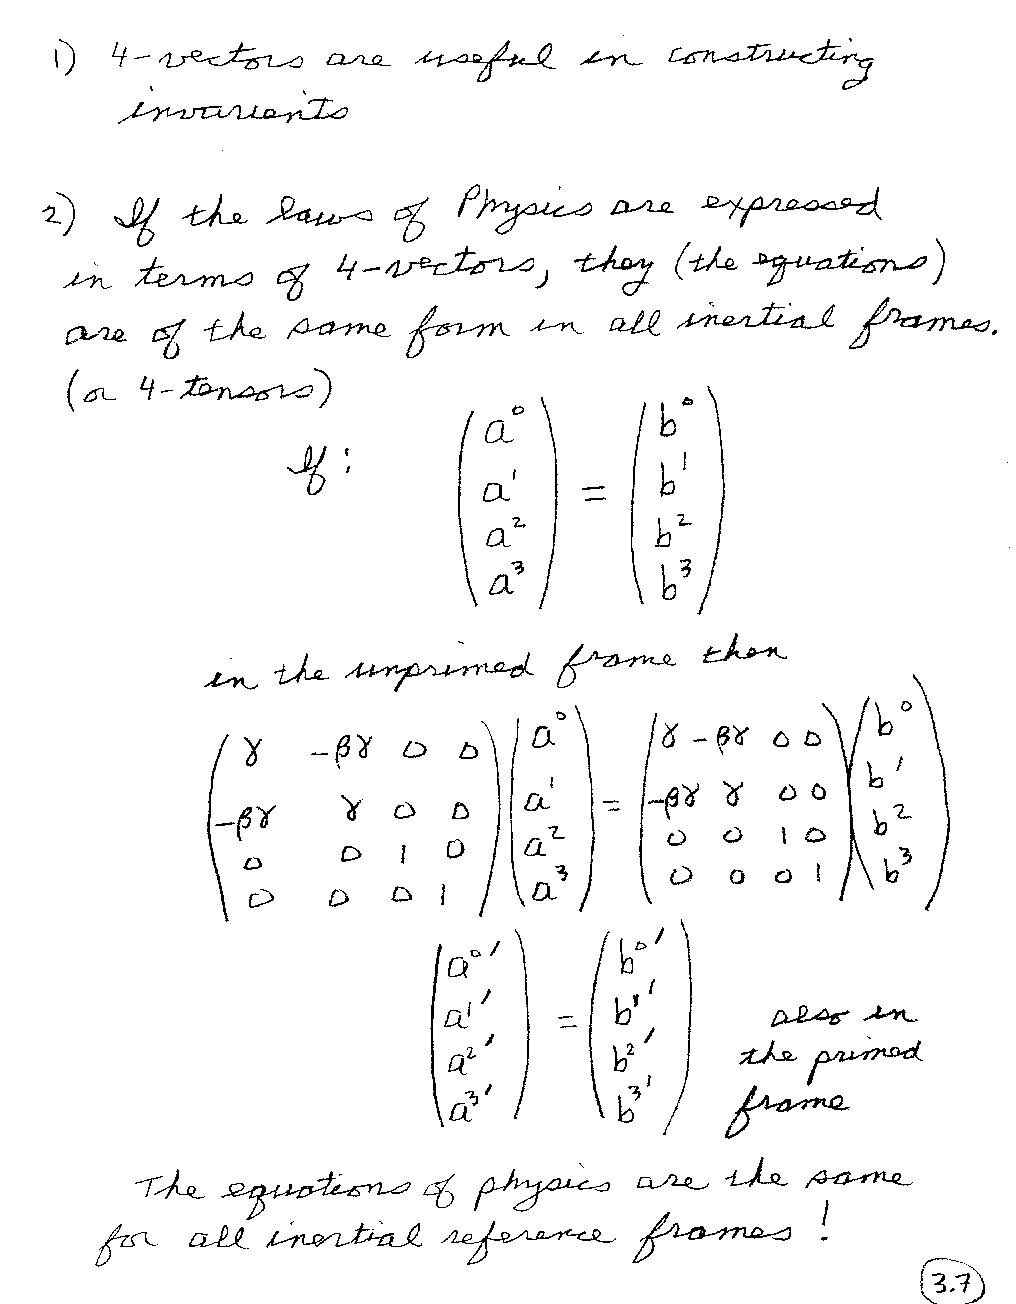 1) 4-vectors are useful in constructing
invariants
2) If the laws of Physics are expressed
in terms of 4-vectors, they (the equations)
are of the same form in all inertial frames.
(or 4-tensors)
If: (a⁰ a¹ a² a³) = (b⁰ b¹ b² b³)
in the unprimed frame then
(γ -βγ 0 0) (a⁰) = (γ -βγ 0 0) (b⁰)
(-βγ γ 0 0) (a¹) = (-βγ γ 0 0) (b¹)
(0 0 1 0) (a²) = (0 0 1 0) (b²)
(0 0 0 1) (a³) = (0 0 0 1) (b³)
(a⁰′ a¹′ a²′ a³′) = (b⁰′ b¹′ b²′ b³′)
also in
the primed
frame
The equations of physics are the same
for all inertial reference frames!
3.7